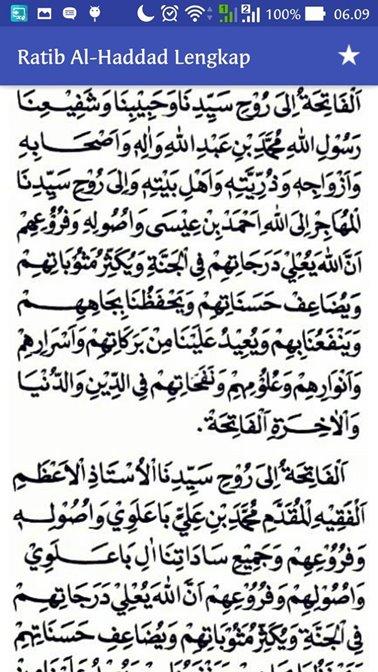 100% 06.09
Ratib Al-Haddad Lengkap
اَلْفَاتِحَةُ اِلَى رُوْحِ سَيِّدِنَا وَحَبِيْبِنَا وَشَفِيْعِنَا
رَسُوْلِ اللهِ مُحَمَّدِ بْنِ عَبْدِ اللهِ وَاٰلِهٖ وَاَصْحَابِهِ
وَاَزْوَاجِهِ وَذُرِّيَّتِهِ وَاَهْلِ بَيْتِهِ وَاِلَى رُوْحِ سَيِّدِنَا
الْمُهَاجِرْ اِلَى اللهِ اَحْمَدَ بْنِ عِيْسَى وَاُصُوْلِهِ وَفُرُوْعِهِمْ
اَنَّ اللهَ يُعْلِيْ دَرَجَاتِهِمْ فِي الْجَنَّةِ وَيُكَثِّرُ مَثُوْبَاتِهِمْ
وَيُضَاعِفُ حَسَنَاتِهِمْ وَيَحْفَظُنَا بِجَاهِهِمْ
وَيَنْفَعُنَا بِهِمْ وَيُعِيْدُ عَلَيْنَا مِنْ بَرَكَاتِهِمْ وَاَسْرَارِهِمْ
وَاَنْوَارِهِمْ وَعُلُوْمِهِمْ وَنَفَحَاتِهِمْ فِي الدِّيْنِ وَالدُّنْيَا
وَالْاٰخِرَةِ اَلْفَاتِحَةُ.
اَلْفَاتِحَةُ اِلَى رُوْحِ سَيِّدِنَا الْاُسْتَاذِ الْاَعْظَمِ
اَلْفَقِيْهِ الْمُقَدَّمِ مُحَمَّدِ بْنِ عَلِيِّ بَاعَلَوِيْ وَاُصُوْلِهِ
وَفُرُوْعِهِمْ وَجَمِيْعِ سَادَاتِنَا اٰلِ بَاعَلَوِيْ
وَاُصُوْلِهِمْ وَفُرُوْعِهِمْ اَنَّ اللهَ يُعْلِيْ دَرَجَاتِهِمْ
فِي الْجَنَّةِ وَيُكَثِّرُ مَثُوْبَاتِهِمْ وَيُضَاعِفُ حَسَنَاتِهِمْ